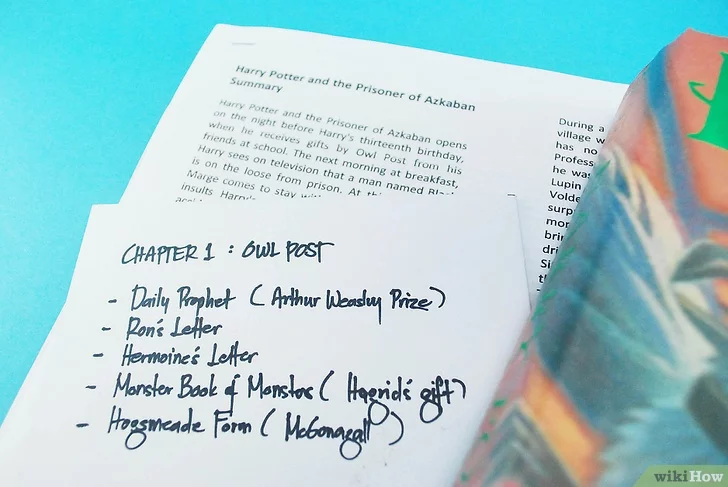 Harry Potter and the Prisoner of Azkaban
Summary
Harry Potter and the Prisoner of Azkaban opens
on the night before Harry's thirteenth birthday,
when he receives gifts by Owl Post from his
friends at school. The next morning at breakfast,
Harry sees on television that a man named
is on the loose from prison. At
Marge comes to stay
insults Harry's
During a
village w
has no
Profess
he was
Lupin
Volde
surp
mor
brin
dri
Si
CHAPTER 1 : OWL POST
- Daily Prophet ( Arthur Weasley Prize )
- Ron's Letter
- Hermoine's Letter
- Monster Book of Monsters ( Hagrid's gift )
- Hogsmeade Form ( McGonagall )
wikiHow